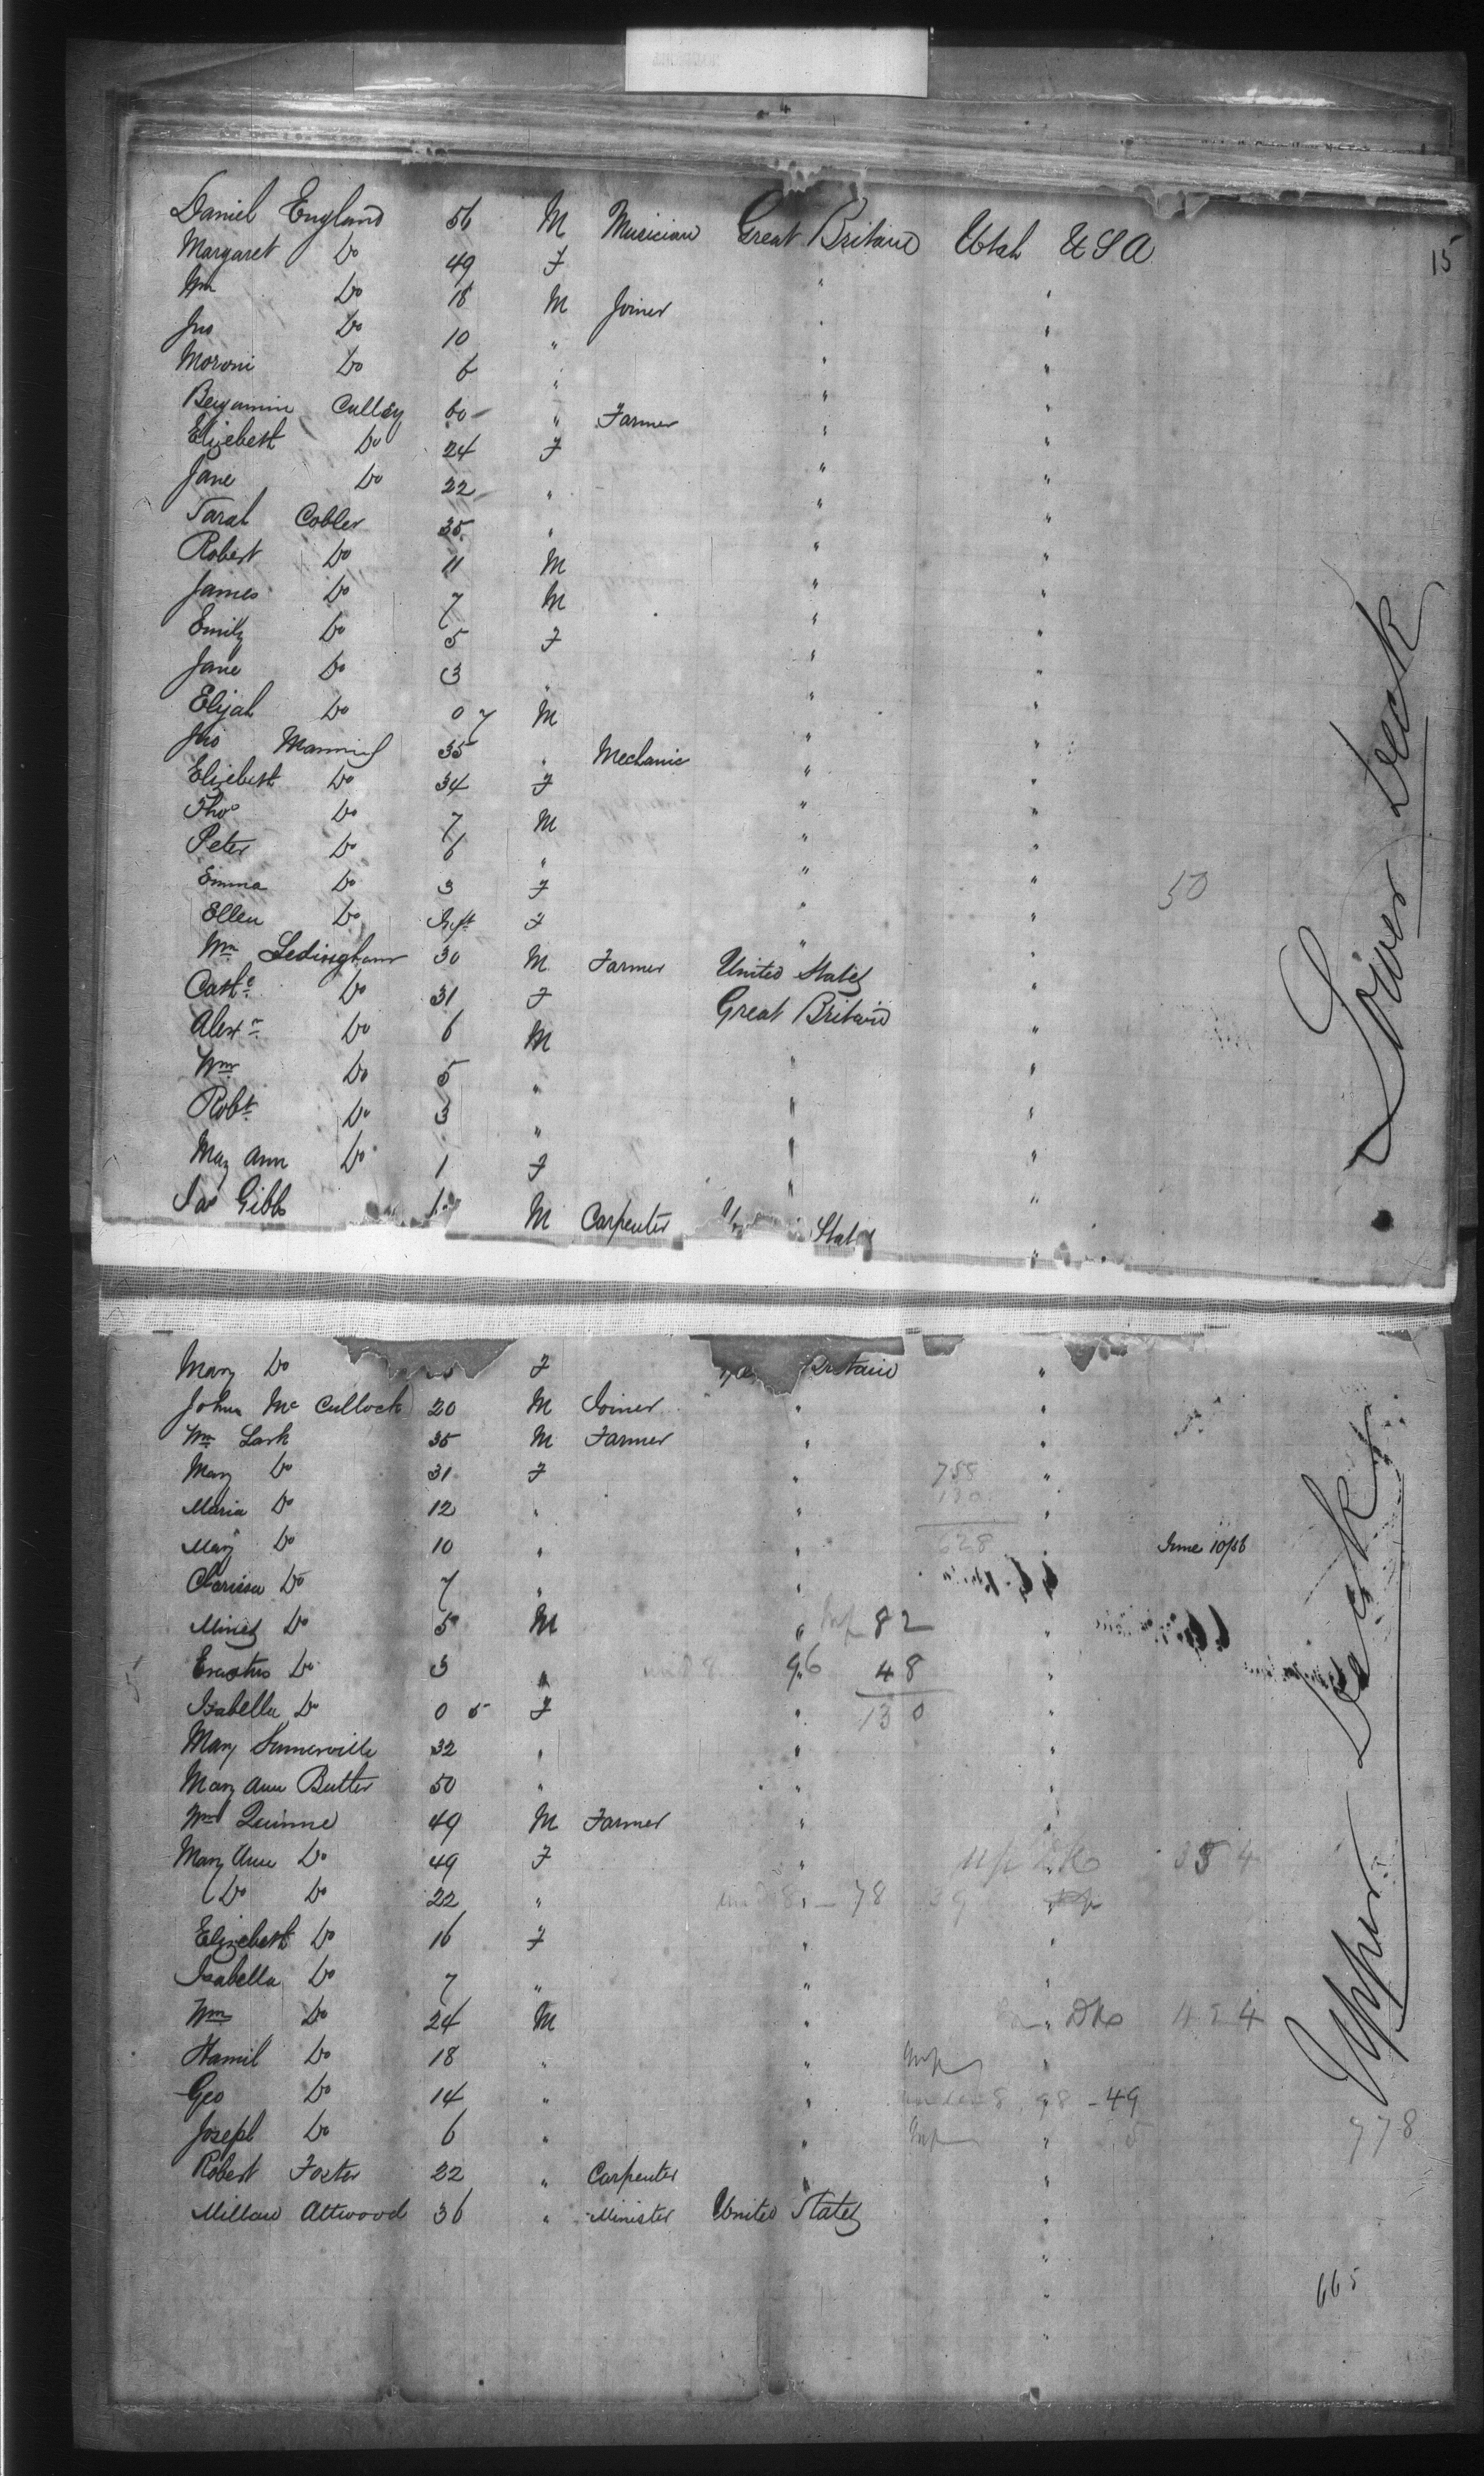 15
Daniel England 56 M Musician Great Britain Utah U S A
Margaret Do 49 F " "
Wm Do 18 M Joiner " "
Jno Do 10 " " "
Moroni Do 6 " " "
Benjamin Culley 60 " Farmer " "
Elizebeth Do 24 F " "
Jane Do 22 " " "
Sarah Cobler 35 " " "
Robert Do 11 M " "
James Do 7 M " "
Emily Do 5 F " "
Jane Do 3 " " "
Elijah Do 0 7 M " "
Jno Manning 35 " Mechanic " "
Elizebeth Do 34 F " "
Thos Do 7 M " "
Peter Do 6 " " "
Emma Do 3 F " "
50
Ellen Do Inft F " "
Wm Ledingham 30 M Farmer United States "
Cathe Do 31 F Great Britain "
Alexr Do 6 M " "
Wm Do 5 " " "
Robt Do 3 " " "
May Ann Do 1 F " "
Jas Gibb M Carpenter States "
Lower Deck
Mary Do F Britain "
John Mc Culloch 20 M Joiner " "
Wm Lark 35 M Farmer " "
Mary Do 31 F " 758 "
Maria Do 12 " " 130 "
Mary Do 10 " " 628 " June 10/56
Clarissa Do 7 " "
Do 5 M " Inf 82 "
Erastus Do 3 " 96 48 "
Isabella Do 0 5 F " 130 "
Mary Sumerville 32 " " "
Mary Ann Butler 50 " " "
Wm Quinne 49 M Farmer " "
Mary Ann Do 49 F " Up Dk 354
Do Do 22 " " 78 39
Elizebeth Do 16 F " "
Isabella Do 7 " " "
Wm Do 24 M " " Dk 424
Hamil Do 18 " " Inf "
Geo Do 14 " " under 8 98 - 49
Joseph Do 6 " " Inf " 5
778
Robert Foster 22 " Carpenter " "
Millow Attwood 36 " Minister United States "
Upper Deck
665